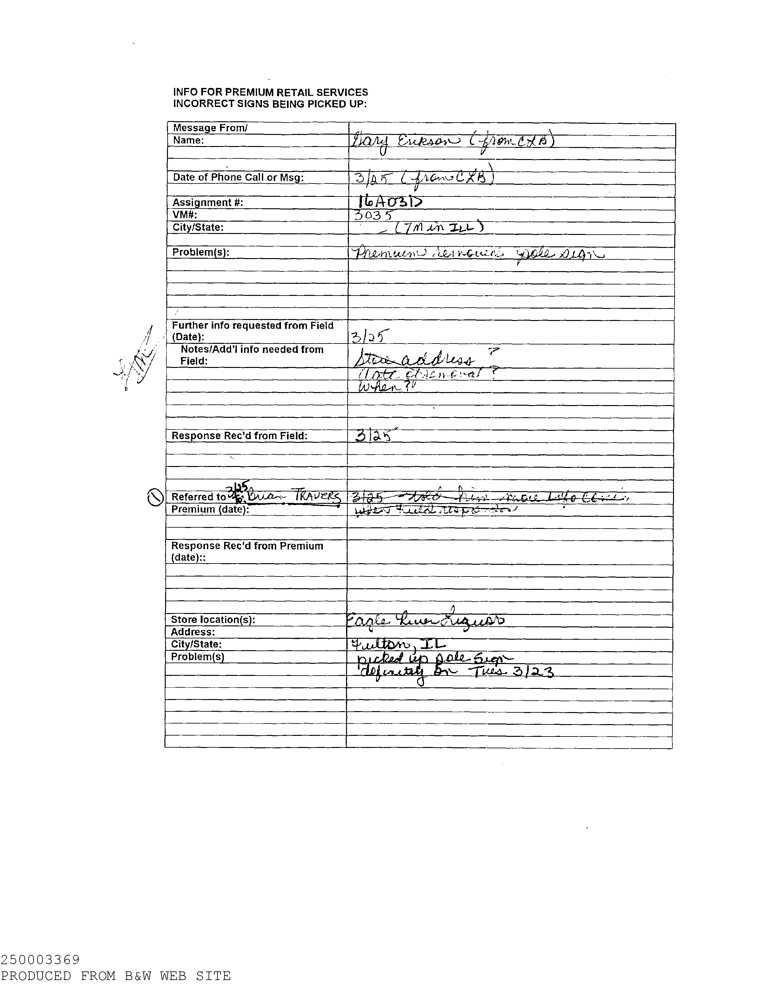 INFO FOR PREMIUM RETAIL SERVICES
INCORRECT SIGNS BEING PICKED UP:
Message From/
Name: Gary Erikson (from CXB)
Date of Phone Call or Msg: 3/25 (from CXB)
Assignment #: 16A03D
VM#: 3035
City/State: (7M in ILL)
Problem(s): Premium removing pole sign
Further info requested from Field
(Date): 3/25
Notes/Add'l info needed from
Field: Store address ?
Date of removal ?
When?
Response Rec'd from Field: 3/25
3/25
Referred to Brian TRAVERS 3/25 told him more info
Premium (date): when field
Response Rec'd from Premium
(date)::
Store location(s): Eagle River Liquor
Address:
City/State: Fulton, IL
Problem(s) picked up pole sign
definitely on Tues 3/23
250003369
PRODUCED FROM B&W WEB SITE